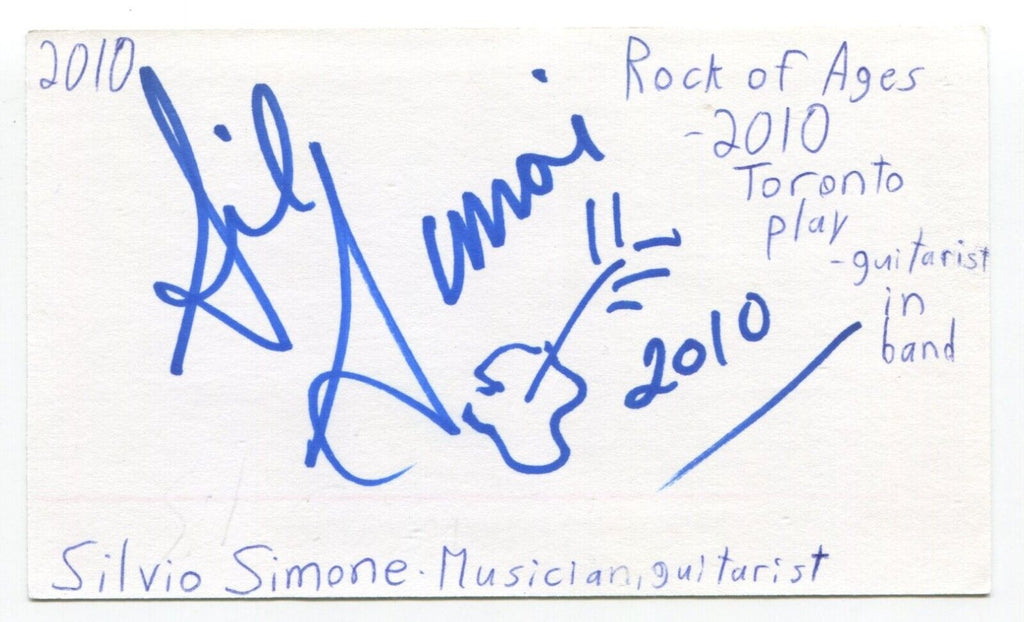 2010
Rock of Ages
-2010
Toronto
play
-guitarist
in
band
2010
Silvio Simone. Musician, guitarist